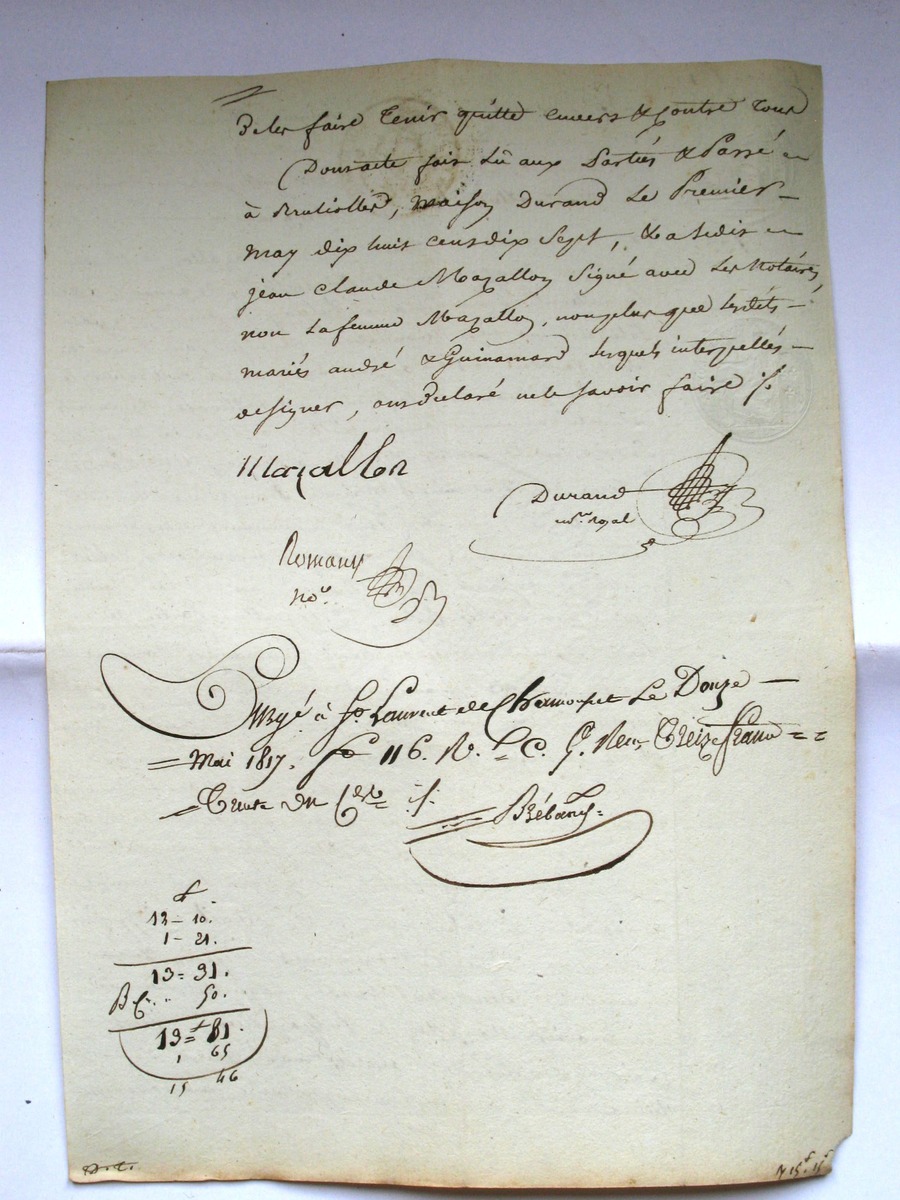 De les faire Tenir quitte envers & Contre Tous
Dont acte fait Lû aux Parties & Passé
à maison Durand Le Premier
may dix huit cent dix Sept, & a Ledit
jean Claude Mazallon Signé avec Les Notaires
non La femme Mazallon, non plus que Lesdits
mariés andré & Guinamard Lesquels interpellés
de signer, ont déclaré ne le Savoir faire ./.
Mazallon
Durand
nore. royal
Romany
nore.
Enrgé. à St. Laurent de Chamousset Le Douze
= Mai 1817. fo 116. R. Treize francs ==
=
12 - 10.
1 - 21.
13 = 31.
50.
13 = 81.
1 65
15 46